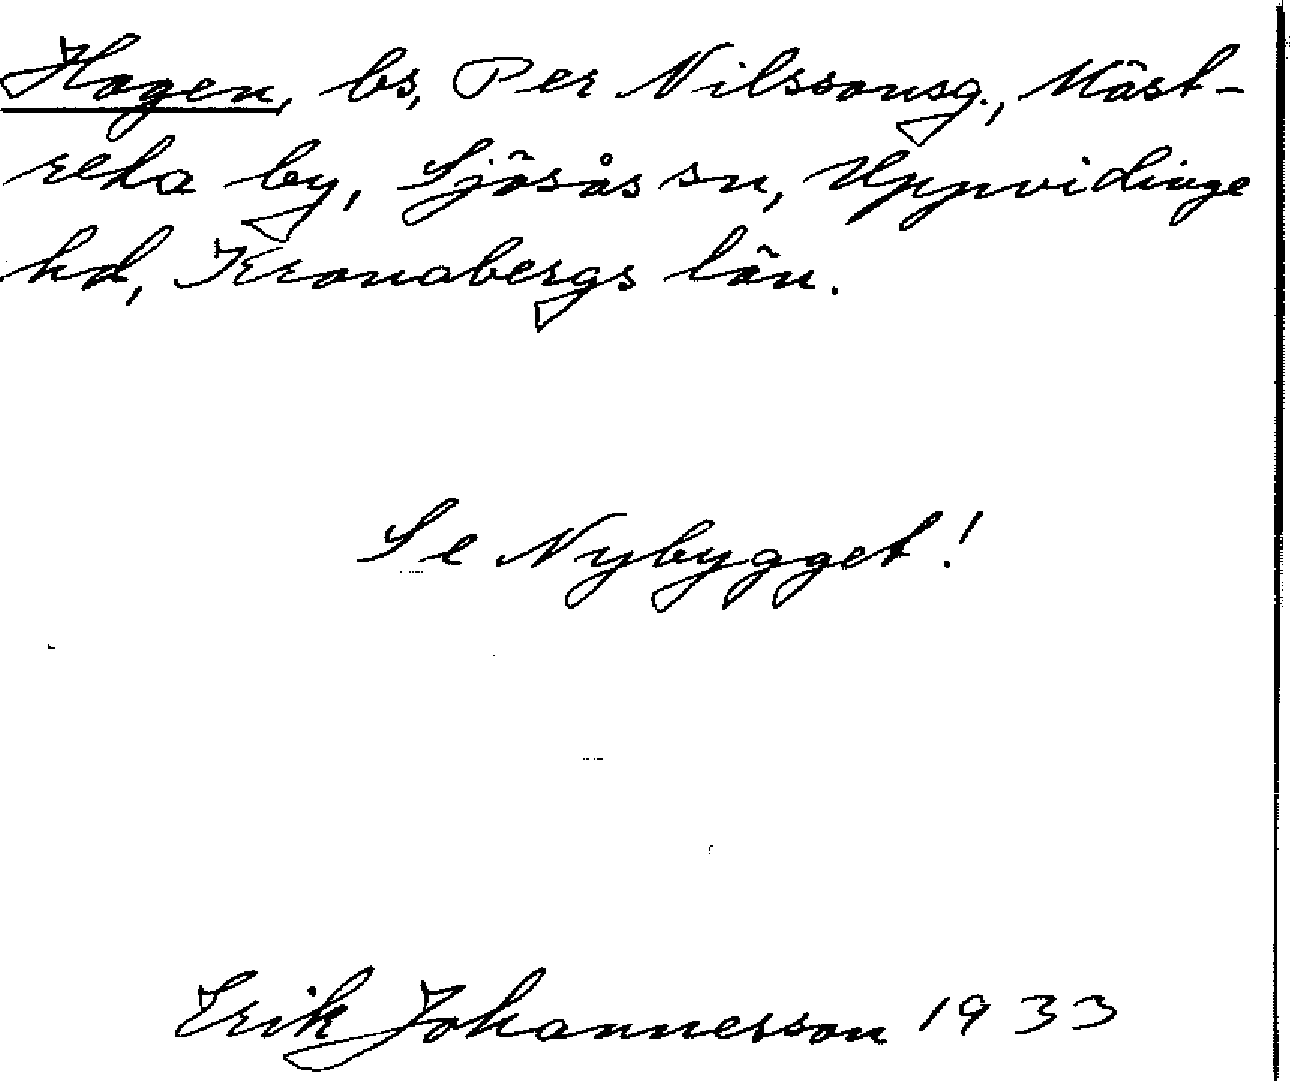 Hagen, bs, Per Nilssonsg., Mäst-
reda by, Sjösås sn, Uppvidinge
hd, Kronobergs län.
Se Nybygget!
Erik Johannesson 1933